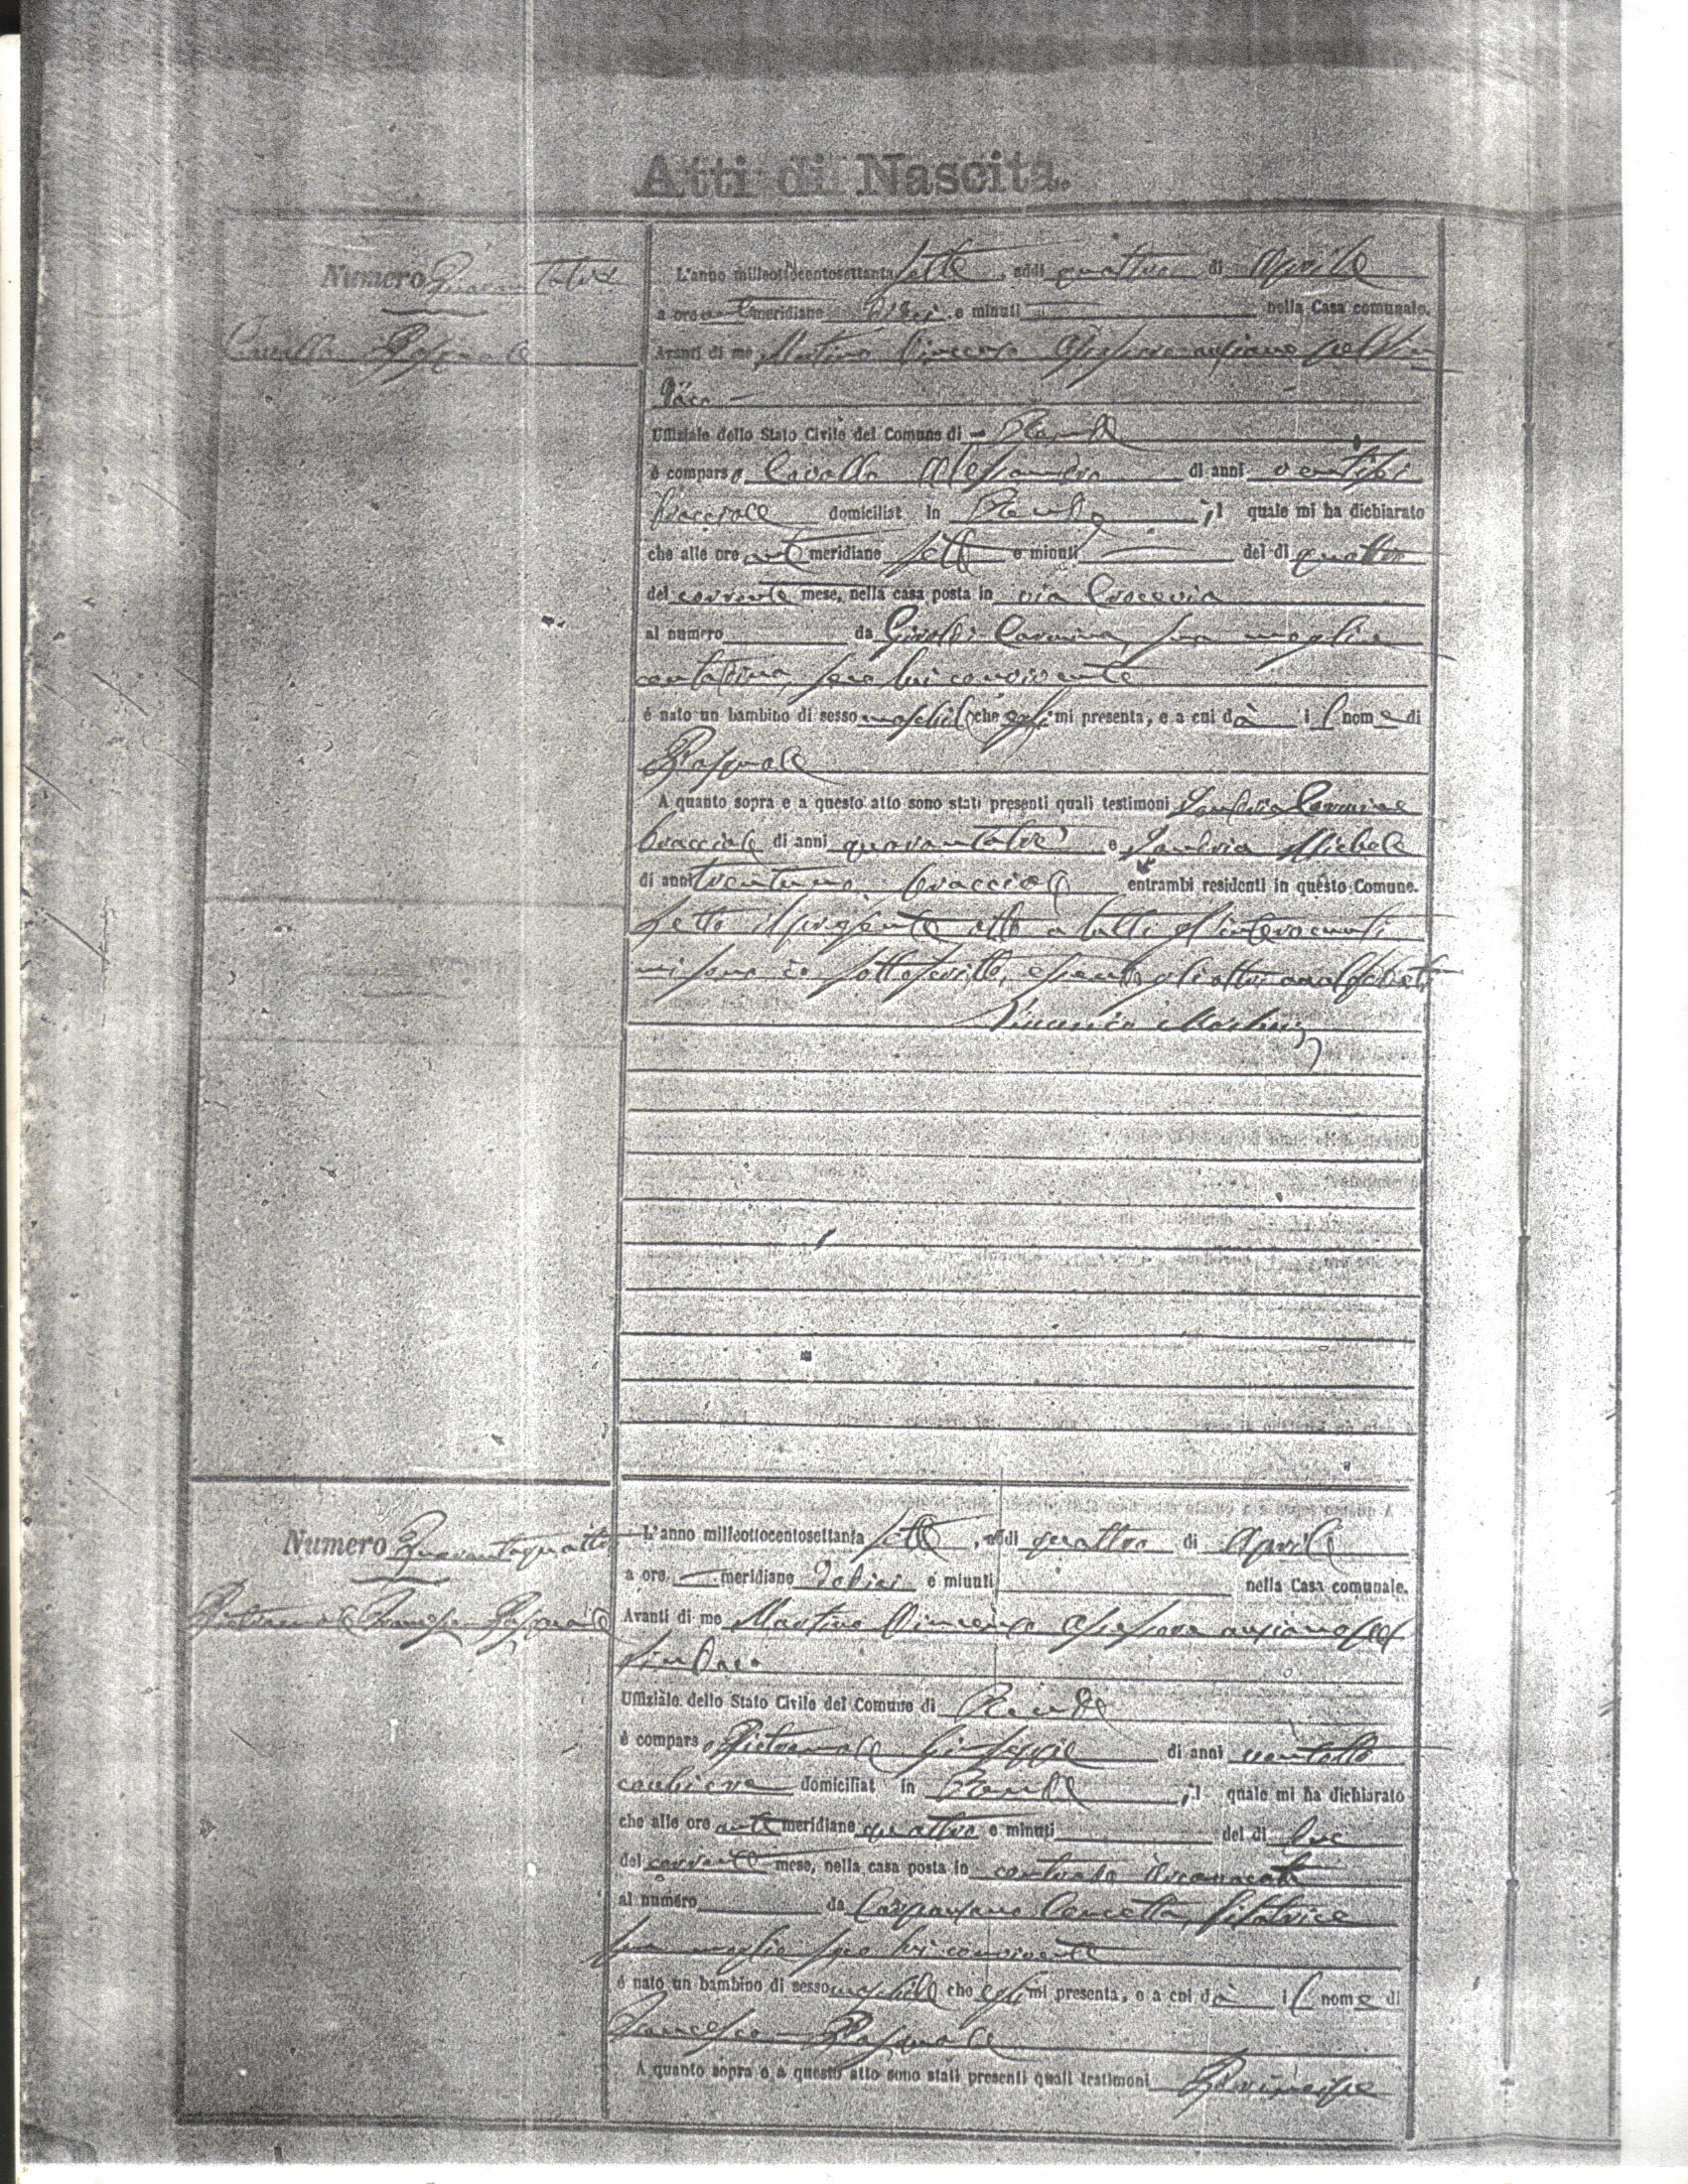 Atti di Nascita.
Numero Quarantatre
Cavallo Pasquale
L'anno milleottocentosettanta sette, addì quattro di Aprile
a ore ante meridiane dieci e minuti nella Casa comunale.
Avanti di me Martino Vincenzo Assessore anziano pel Sin
daco
Uffiziale dello Stato Civile del Comune di Rende
è comparso Cavallo Alessandro di anni ventisei
bracciale domiciliat in Rende, il quale mi ha dichiarato
che alle ore ant meridiane sette e minuti del dì quattro
del corrente mese, nella casa posta in via Crocevia
al numero da Carmina, sua moglie
contadina, seco lui convivente
è nato un bambino di sesso maschile che egli mi presenta, e a cui dà il nome di
Pasquale
A quanto sopra e a questo atto sono stati presenti quali testimoni Carmine
bracciale di anni quarantatre e Michele
di anni trentuno bracciale entrambi residenti in questo Comune.
Letto il presente atto a tutti gl'intervenuti
mi sono io sottoscritto, essendo gli altri analfabeti
Vincenzo Martino
Numero Quarantaquattro
Pietramale Francesco Pasquale
L'anno milleottocentosettanta sette, addì quattro di Aprile
a ore meridiane dodici e minuti nella Casa comunale.
Avanti di me Martino Vincenzo Assessore anziano pel
Sindaco
Uffiziale dello Stato Civile del Comune di Rende
è comparso Pietramale Giuseppe di anni ventotto
domiciliat in Rende, il quale mi ha dichiarato
che alle ore ante meridiane quattro e minuti del dì due
del corrente mese, nella casa posta in contrada
al numero da Carpanzano Concetta, filatrice
sua moglie seco lui convivente
è nato un bambino di sesso maschile che egli mi presenta, e a cui dà il nome di
Francesco Pasquale
A quanto sopra e a questo atto sono stati presenti quali testimoni Principe